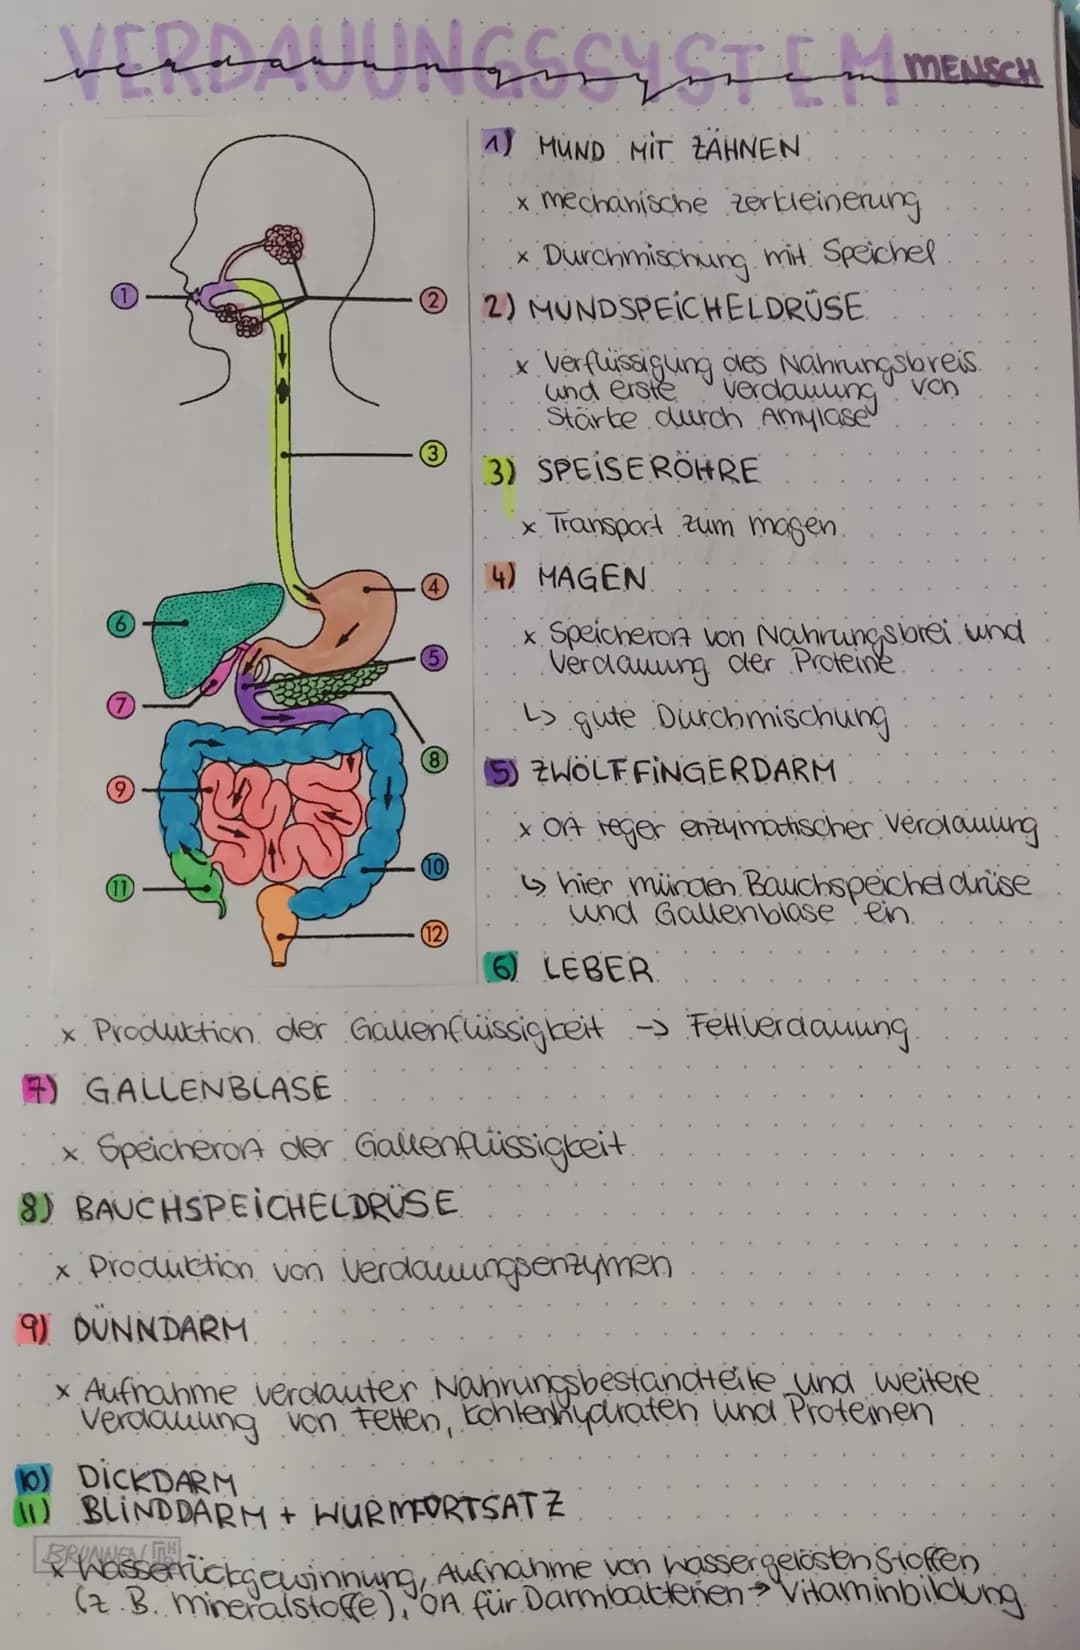 VERDAUUNGSSYSTEM
verdauungssystem MENSCH
1) MUND MIT ZÄHNEN
x mechanische Zerkleinerung
x Durchmischung mit Speichel
2) MUNDSPEICHELDRÜSE
x Verflüssigung des Nahrungsbreis
und erste Verdauung von
Stärke durch Amylase
3) SPEISERÖHRE
x Transport zum Magen
4) MAGEN
x Speicherort von Nahrungsbrei und
Verdauung der Proteine
↳ gute Durchmischung
5) ZWÖLFFINGERDARM
x Ort reger enzymatischer Verdauung
↳ hier münden Bauchspeicheldrüse
und Gallenblase ein
6) LEBER
1
2
3
4
6
5
7
8
9
10
11
11
12
x Produktion der Gallenflüssigkeit -> Fettverdauung
7) GALLENBLASE
x Speicherort der Gallenflüssigkeit
8) BAUCHSPEICHELDRÜSE
x Produktion von Verdauungsenzymen
9) DÜNNDARM
x Aufnahme verdauter Nahrungsbestandteile und weitere
Verdauung von Fetten, Kohlenhydraten und Proteinen
10) DICKDARM
11) BLINDDARM + WURMFORTSATZ
BRUNNEN
x Wasserrückgewinnung, Aufnahme von wassergelösten Stoffen
(z.B. Mineralstoffe), Ort für Darmbakterien → Vitaminbildung